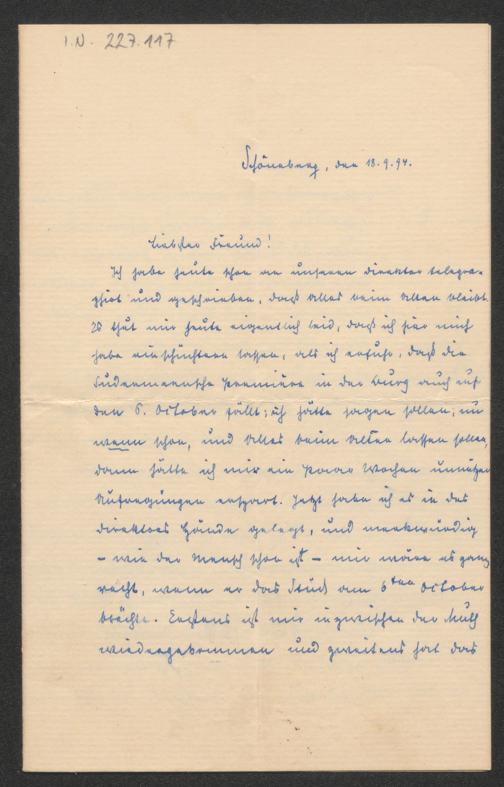 I.N. 227.117
Schöneberg, den 18.9.94.
Liebster Freund!
Ich habe heute schon an unseren Direktor telegra-
phirt und geschrieben, daß alles beim Alten bleibt.
Es thut mir heute eigentlich leid, daß ich hier mich
habe einschüchtern lassen, als ich erfuhr, daß die
Sudermannsche Première in der Burg auch auf
den 6. October fällt; ich hätte sagen sollen, nu
wenn schon, und alles beim Alten lassen sollen,
dann hätte ich mir ein Paar Wochen unnützer
Aufregungen erspart. Jetzt habe ich es in des
Direktors Hände gelegt, und merkwürdig
– wie der Mensch schon ist – mir wäre es ganz
recht, wenn er das Stück am 6ten October
brächte. Erstens ist mir inzwischen der Muth
wiedergekommen und zweitens hat das